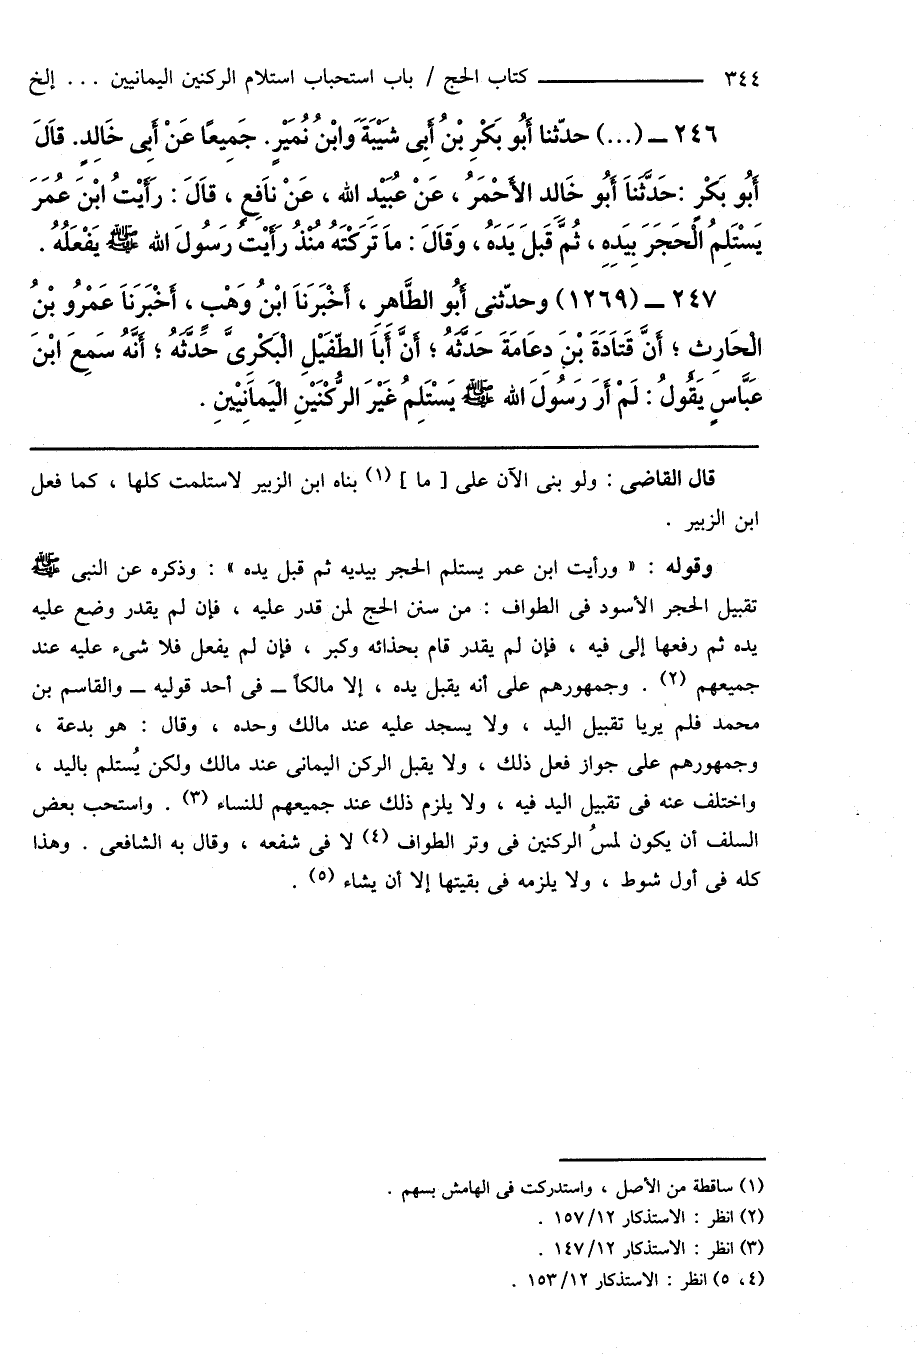 ٣٤٤ ـــــــــــــ كتاب الحج / باب استحباب استلام الركنين اليمانيين ... إلخ
٢٤٦ ــ (...) حدّثنا أَبُو بَكْرِ بْنُ أَبِى شَيْبَةَ وَابْنُ نُمَيْرٍ. جَمِيعًا عَنْ أَبِى خَالِدٍ. قَالَ
أَبُو بَكْرٍ :حَدَّثَنَا أَبُو خَالِدٍ الأَحْمَرُ ، عَنْ عُبَيْدِ اللهِ ، عَنْ نَافِعٍ ، قَالَ : رَأَيْتُ ابْنَ عُمَرَ
يَسْتَلِمُ الْحَجَرَ بِيَدِهِ ، ثُمَّ قَبَلَ يَدَهُ ، وَقَالَ : مَا تَرَكْتَهُ مُنْذُ رَأَيْتُ رَسُولَ اللهِ ﷺ يَفْعَلُهُ .
٢٤٧ ــ (١٢٦٩) وحدّثنى أَبُو الطَّاهِرِ ، أَخْبَرَنَا ابْنُ وَهْبٍ ، أَخْبَرَنَا عَمْرُو بْنُ
الْحَارِثِ ؛ أَنَّ قَتَادَةَ بْنَ دِعَامَةَ حَدَّثَهُ ؛ أَنَّ أَبَا الطُّفَيْلِ الْبَكْرِىَّ حَدَّثَهُ ؛ أَنَّهُ سَمِعَ ابْنَ
عَبَّاسٍ يَقُولُ : لَمْ أَرَ رَسُولَ اللهِ ﷺ يَسْتَلِمُ غَيْرَ الرُّكْنَيْنِ الْيَمَانَيْينِ .
قال القاضى : ولو بنى الآن على [ ما ] (١) بناه ابن الزبير لاستلمت كلها ، كما فعل
ابن الزبير .
وقوله : « ورأيت ابن عمر يستلم الحجر بيديه ثم قبل يده » : وذكره عن النبى ﷺ
تقبيل الحجر الأسود فى الطواف : من سنن الحج لمن قدر عليه ، فإن لم يقدر وضع عليه
يده ثم رفعها إلى فيه ، فإن لم يقدر قام بحذائه وكبر ، فإن لم يفعل فلا شىء عليه عند
جميعهم (٢) . وجمهورهم على أنه يقبل يده ، إلا مالكاً ــ فى أحد قوليه ــ والقاسم بن
محمد فلم يريا تقبيل اليد ، ولا يسجد عليه عند مالك وحده ، وقال : هو بدعة ،
وجمهورهم على جواز فعل ذلك ، ولا يقبل الركن اليمانى عند مالك ولكن يُستلم باليد ،
واختلف عنه فى تقبيل اليد فيه ، ولا يلزم ذلك عند جميعهم للنساء (٣) . واستحب بعض
السلف أن يكون لمسُ الركنين فى وتر الطواف (٤) لا فى شفعه ، وقال به الشافعى . وهذا
كله فى أول شوط ، ولا يلزمه فى بقيتها إلا أن يشاء (٥) .
(١) ساقطة من الأصل ، واستدركت فى الهامش بسهم .
(٢) انظر : الاستذكار ١٢/ ١٥٧ .
(٣) انظر : الاستذكار ١٢/ ١٤٧ .
(٤ ، ٥) انظر : الاستذكار ١٢/ ١٥٣ .